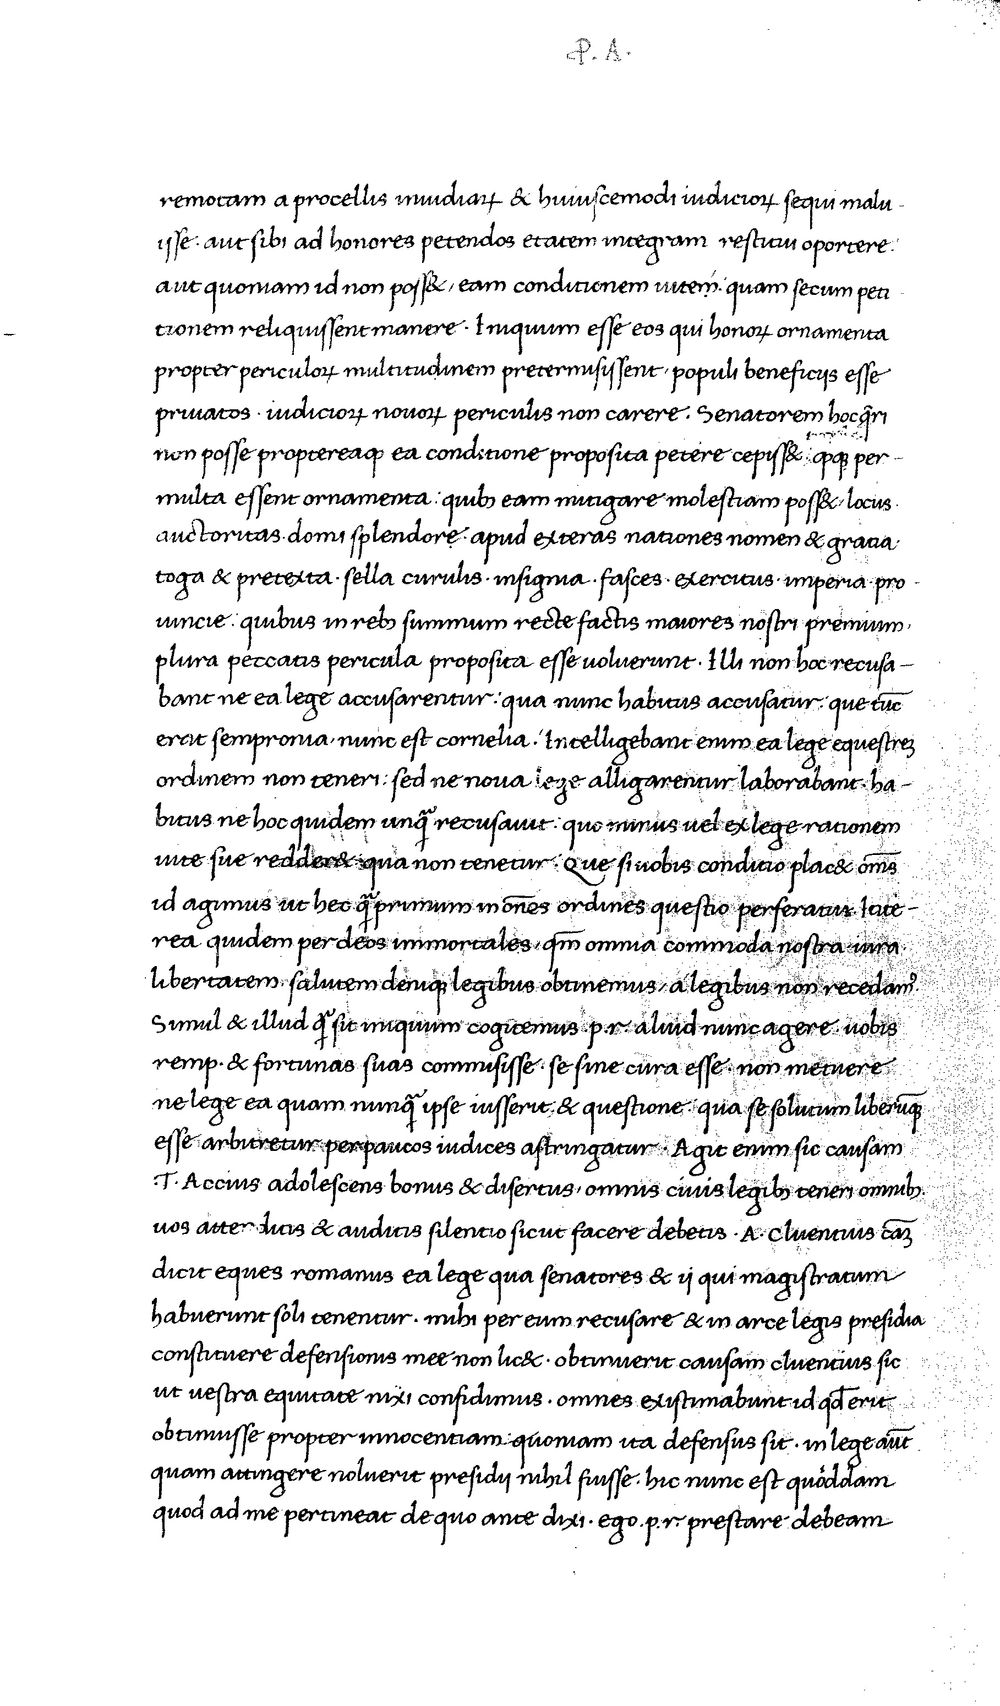 P. A.
remotam a procellis inuidiaꝝ & huiuscemodi iudicioꝝ sequi malu-
isse. aut sibi ad honores petendos etatem integram restitui oportere:
aut quoniam id non poss&, eam conditionem uitem: quam secum peti
tionem reliquissent manere. Iniquum esse eos qui honoꝝ ornamenta
propter periculoꝝ multitudinem pretermisissent, populi beneficijs esse
priuatos. iudicioꝝ nouoꝝ periculis non carere. Senatorem hoc q̄ri
non posse proptereaqꝫ ea conditione proposita petere cepiss&: per-
multa essent ornamenta: quibꝫ eam mitigare molestiam poss&, locus.
auctoritas. domi splendore. apud exteras nationes nomen & gratia.
toga & pretexta. sella curulis. insignia. fasces. exercitus. imperia. pro-
uincie: quibus in rebꝫ summum recte factis maiores nostri premium,
plura peccatis pericula proposita esse uoluerunt. Illi non hoc recusa-
bant ne ea lege accusarentur: qua nunc habitus accusatur: que tūc
erat sempronia, nunc est cornelia: Intelligebant enim ea lege equestrē
ordinem non teneri: sed ne noua lege alligarentur laborabant. ha-
bitus ne hoc quidem unq̄ recusauit. quo minus uel ex lege rationem
uite sue redder& qua non tenetur. Que si uobis conditio plac& om̄s
id agimus ut hec q̄ primum in on̄es ordines questio perferatur. Inte-
rea quidem per deos immortales, qm̄ omnia commoda nostra iura
libertatem. salutem deniqꝫ legibus obtinemus, a legibus non recedamꝰ.
Simul & illud q̄ sit iniquum cogitemus. p.r. aliud nunc agere. uobis
remp. & fortunas suas commisisse. se sine cura esse. non metuere
ne lege ea quam nunq̄ ipse iusserit. & questione. qua se solutum liberūqꝫ
esse arbitretur perpaucos iudices astringatur. Agit enim sic causam
T. Accius adolescens bonus & disertus, omnis ciuis legibꝫ teneri omnibꝫ.
uos attenditis & auditis silentio sicut facere debetis. A. Cluentius cāꝫ
dicit eques romanus ea lege qua senatores & ij qui magistratum
habuerunt soli tenentur. mihi per eum recusare & in arce legis presidia
constituere defensionis mee non lic&. obtinuerit causam cluentius sic
ut uestra equitate nixi confidimus. omnes existimabunt id qd̄ erit
obtinuisse propter innocentiam quoniam ita defensus sit. in lege aūt
quam attingere noluerit presidij nihil fuisse. hic nunc est quoddam
quod ad me pertineat de quo ante dixi. ego. p.r. prestare debeam